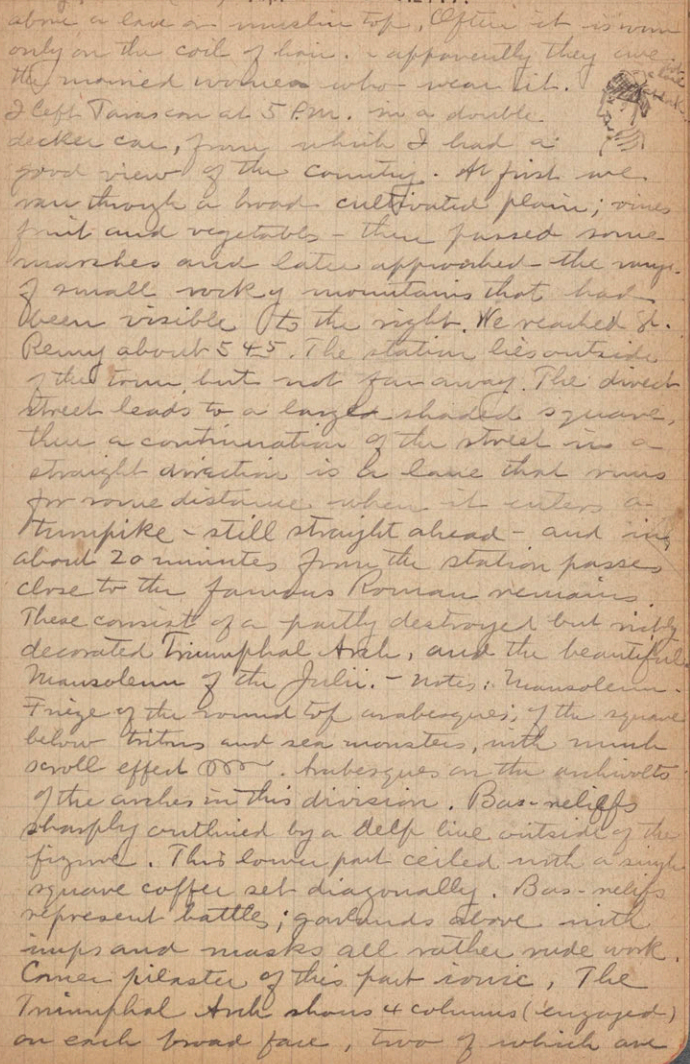 above a lace or muslin top. Often it is worn
only on the coil of hair. apparently they are
the married women who wear it.
I left Tarascon at 5 P.M. in a double
decker car, from which I had a
good view of the country. At first we
ran through a broad cultivated plain; vines
fruit and vegetables - then passed some
marshes and later approached the range
of small rocky mountains that had
been visible to the right. We reached St.
Remy about 5 45. The station lies outside
of the town, but not far away. The direct
street leads to a large shaded square,
then a continuation of the street in a
straight direction is a lane that runs
for some distance when it enters a
turnpike - still straight ahead - and in
about 20 minutes from the station passes
close to the famous Roman remains.
These consist of a partly destroyed but richly
decorated Triumphal Arch, and the beautiful
Mausoleum of the Julii. - Notes: Mausoleum -
Frieze of the round top arabesques; of the square
below tritons and sea monsters, with much
scroll effect. Arabesques on the archivolts
of the arches in this division. Bas-reliefs
sharply outlined by a deep line outside of the
figure. This lower part ceiled with a single
square coffer set diagonally. Bas-reliefs
represent battles; garlands above with
imps and masks all rather rude work.
Corner pilaster of this part ionic. The
Triumphal Arch shows 4 columns (engaged)
on each broad face, two of which are